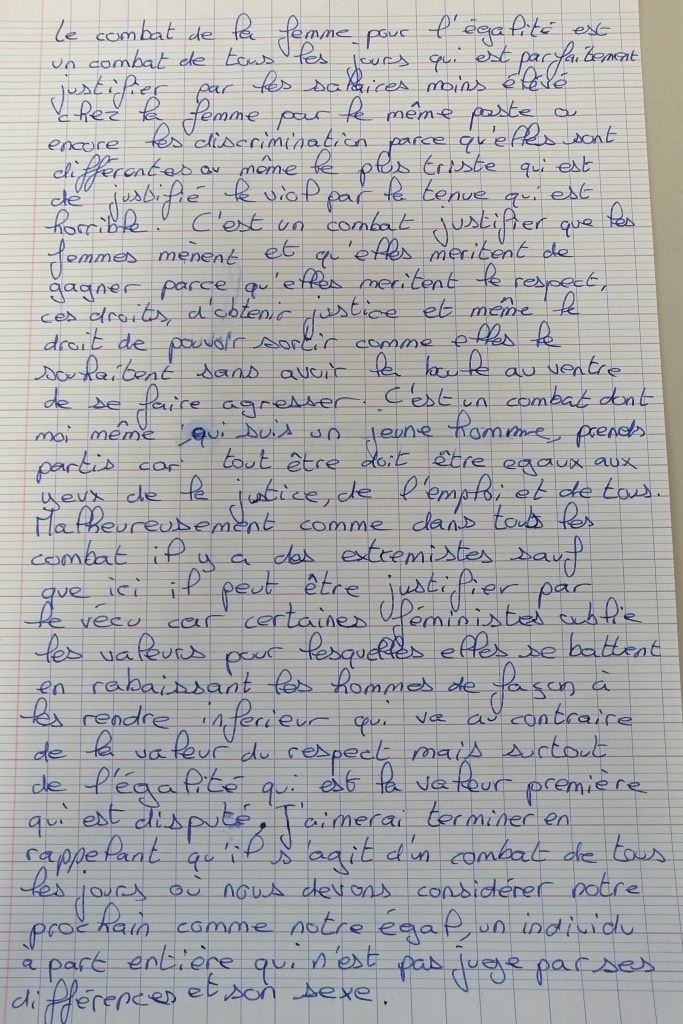 Le combat de la femme pour l'égalité est
un combat de tous les jours qui est parfaitement
justifier par les salaires moins élévé
chez la femme pour le même poste ou
encore les discrimination parce qu'elles sont
différentes ou même le plus triste qui est
de justifié le viol par la tenue qui est
horrible. C'est un combat justifier que les
femmes mènent et qu'elles meritent de
gagner parce qu'elles meritent le respect,
ces droits, d'obtenir justice et même le
droit de pouvoir sortir comme elles le
souhaitent sans avoir la boule au ventre
de se faire agresser. C'est un combat dont
moi même qui suis un jeune homme, prends
partis car tout être doit être egaux aux
yeux de la justice, de l'emploi et de tous.
Malheureusement comme dans tous les
combat il y a des extremistes sauf
que ici il peut être justifier par
le vécu car certaines féministes oublie
les valeurs pour lesquelles elles se battent
en rabaissant les hommes de façon à
les rendre inferieur qui va au contraire
de la valeur du respect mais surtout
de l'égalité qui est la valeur première
qui est disputé. J'aimerai terminer en
rappelant qu'il s'agit d'un combat de tous
les jours où nous devons considérer notre
prochain comme notre égal, un individu
à part entière qui n'est pas juge par ses
différences et son sexe.